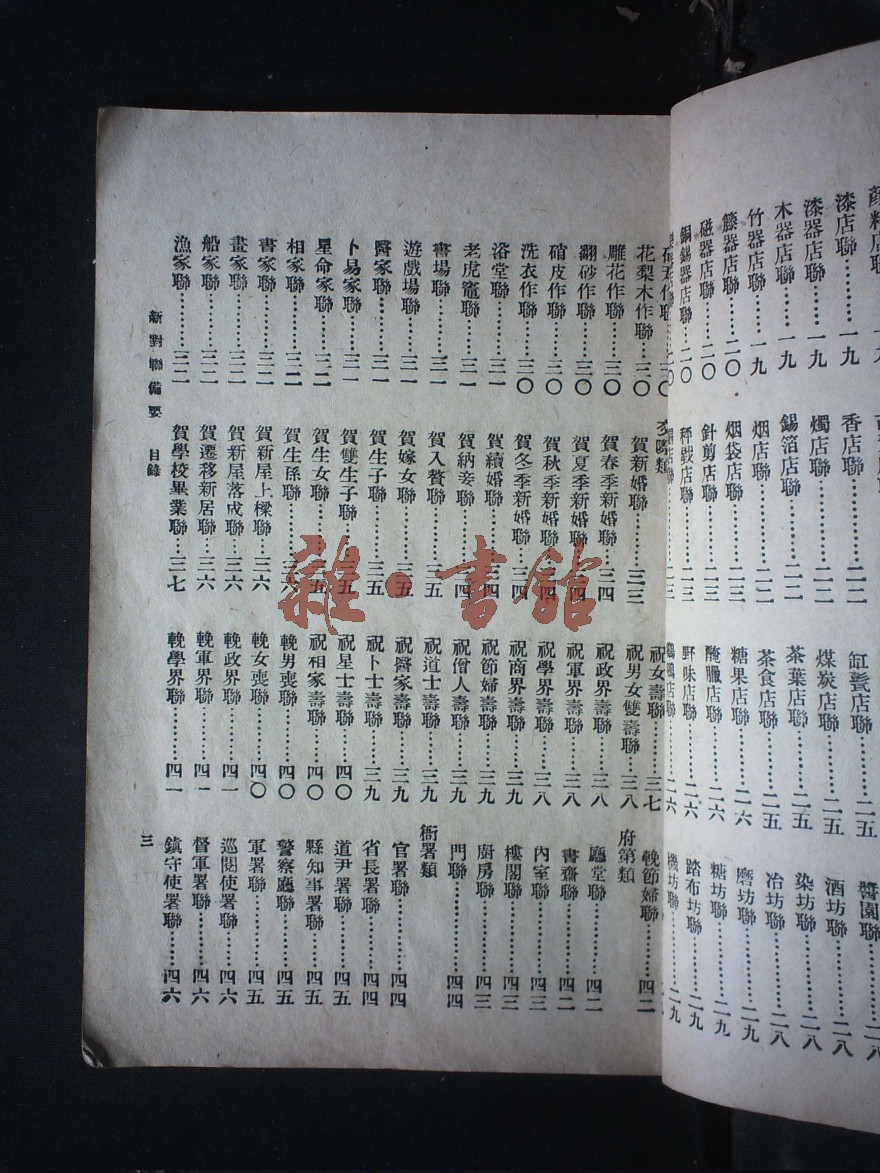 漆店聯………一九
漆器店聯……一九
木器店聯……一九
竹器店聯……一九
籐器店聯……二〇
磁器店聯……二〇
銅錫器店聯…二〇
香店聯………二二
燭店聯………二二
錫箔店聯……二二
烟店聯………二二
烟袋店聯……二三
針剪店聯……二三
秤戥店聯……二三
缸甏店聯……二五
煤炭店聯……二五
茶葉店聯……二五
茶食店聯……二五
糖果店聯……二六
醃臘店聯……二六
野味店聯……二六
醬園聯………二八
酒坊聯………二八
染坊聯………二八
冶坊聯………二八
磨坊聯………二九
糖坊聯………二九
踏布坊聯……二九
機坊聯………二九
花梨木作聯…三〇
雕花作聯……三〇
翻砂作聯……三〇
硝皮作聯……三〇
洗衣作聯……三〇
浴堂聯………三一
老虎竈聯……三一
書場聯………三一
遊戲場聯……三一
醫家聯………三一
卜易家聯……三一
星命家聯……三二
相家聯………三二
書家聯………三二
畫家聯………三二
船家聯………三二
漁家聯………三二
賀新婚聯……三三
賀春季新婚聯…三四
賀夏季新婚聯…三四
賀秋季新婚聯…三四
賀冬季新婚聯…三四
賀續婚聯……三四
賀納妾聯……三四
賀入贅聯……三五
賀嫁女聯……三五
賀生子聯……三五
賀雙生子聯…三五
賀生女聯……三五
賀生孫聯……三六
賀新屋上樑聯…三六
賀新屋落成聯…三六
賀遷移新居聯…三六
賀學校畢業聯…三七
祝女壽聯……三七
祝男女雙壽聯…三八
祝政界壽聯…三八
祝軍界壽聯…三八
祝學界壽聯…三八
祝商界壽聯…三九
祝節婦壽聯…三九
祝僧人壽聯…三九
祝道士壽聯…三九
祝醫家壽聯…三九
祝卜士壽聯…三九
祝星士壽聯…四〇
祝相家壽聯…四〇
輓男喪聯……四〇
輓女喪聯……四〇
輓政界聯……四一
輓軍界聯……四一
輓學界聯……四一
輓節婦聯……四二
府第類
廳堂聯………四二
書齋聯………四二
內室聯………四三
樓閣聯………四三
廚房聯………四三
門聯…………四四
衙署類
官署聯………四四
省長署聯……四四
道尹署聯……四五
縣知事署聯…四五
警察廳聯……四五
軍署聯………四五
巡閱使署聯…四六
督軍署聯……四六
鎮守使署聯…四六
新對聯備要　目錄
三
雜·書館